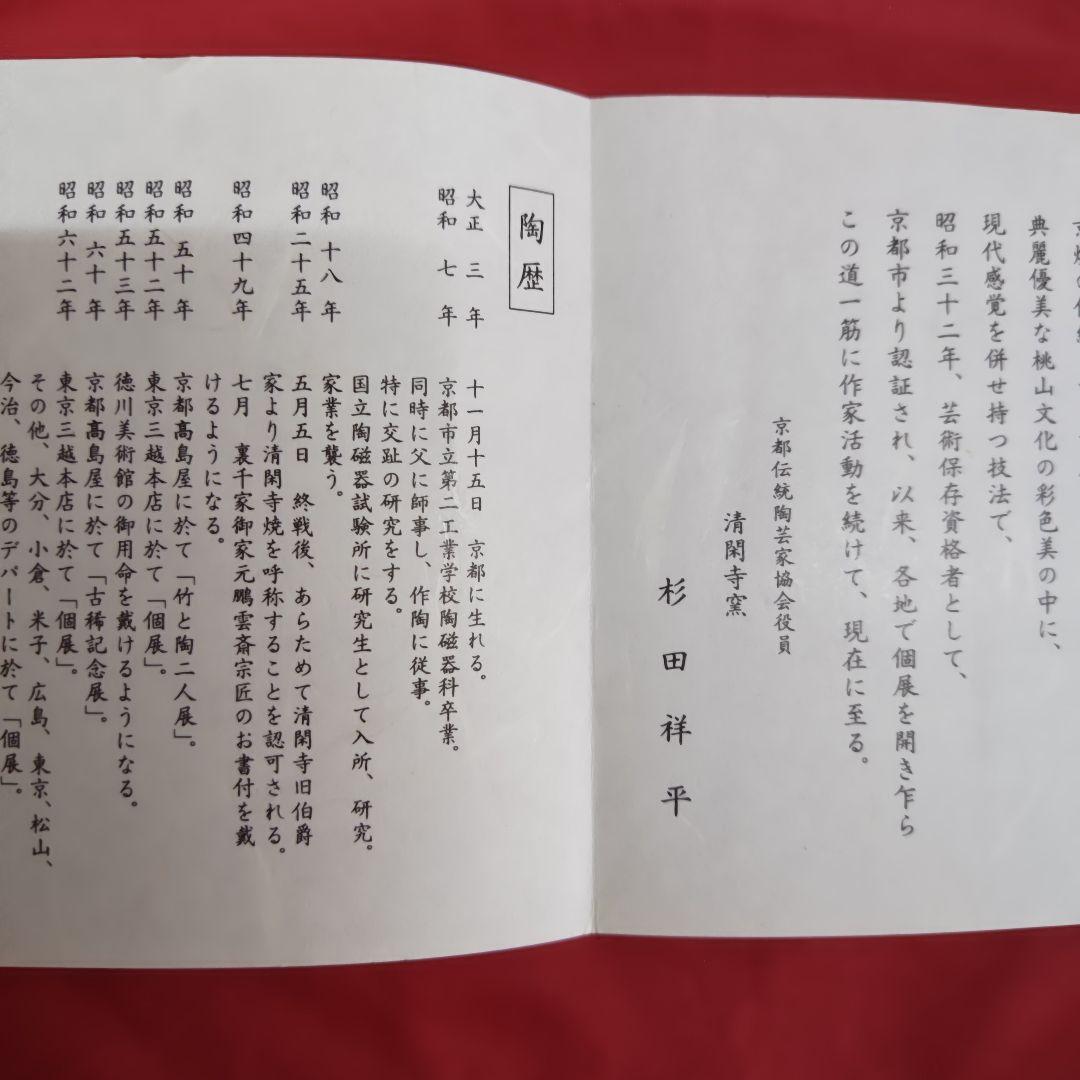 典麗優美な桃山文化の彩色美の中に、
現代感覚を併せ持つ技法で、
昭和三十二年、芸術保存資格者として、
京都市より認証され、以来、各地で個展を開き乍ら
この道一筋に作家活動を続けて、現在に至る。
京都伝統陶芸家協会役員
清閑寺窯
杉田祥平
陶歴
大正 三 年 十一月十五日 京都に生れる。
昭和 七 年 京都市立第二工業学校陶磁器科卒業。
同時に父に師事し、作陶に従事。
特に交趾の研究をする。
国立陶磁器試験所に研究生として入所、研究。
昭和 十八 年 家業を襲う。
昭和二十五年 五月五日 終戦後、あらためて清閑寺旧伯爵
家より清閑寺焼を呼称することを認可される。
昭和四十九年 七月 裏千家御家元鵬雲斎宗匠のお書付を戴
けるようになる。
昭和 五十 年 京都髙島屋に於て「竹と陶二人展」。
昭和五十二年 東京三越本店に於て「個展」。
昭和五十三年 徳川美術館の御用命を戴けるようになる。
昭和 六十 年 京都髙島屋に於て「古稀記念展」。
昭和六十二年 東京三越本店に於て「個展」。
その他、大分、小倉、米子、広島、東京、松山、
今治、徳島等のデパートに於て「個展」。